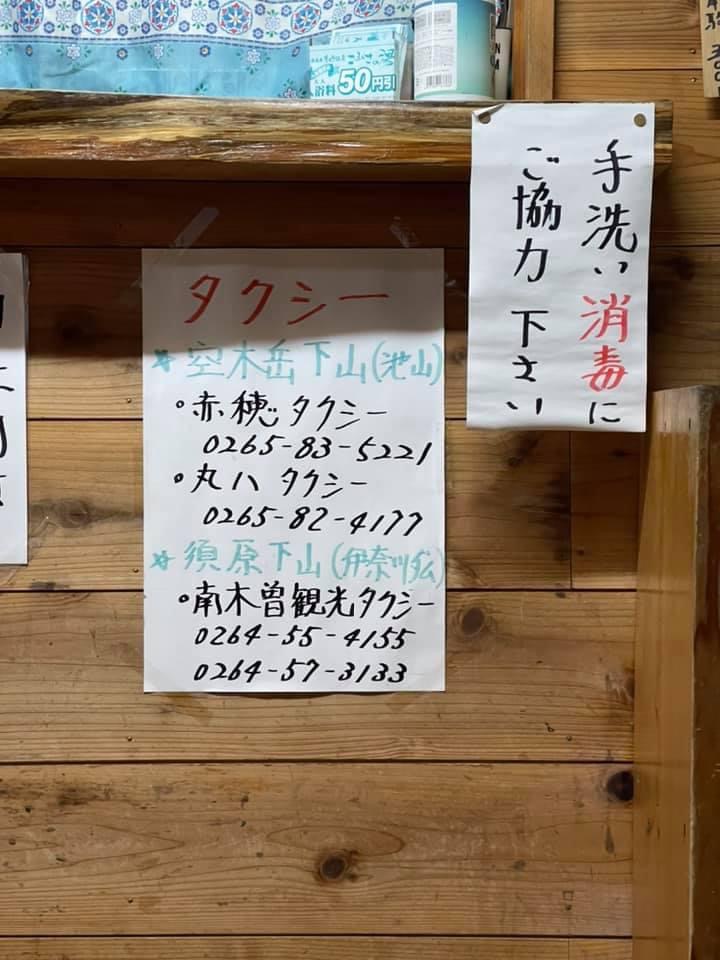 浴料50円引
手洗い消毒に
ご協力下さい
タクシー
*空木岳下山(池山)
・赤穂タクシー
0265-83-5221
・丸八タクシー
0265-82-4177
*須原下山(伊奈川ダム)
・南木曽観光タクシー
0264-55-4155
0264-57-3133